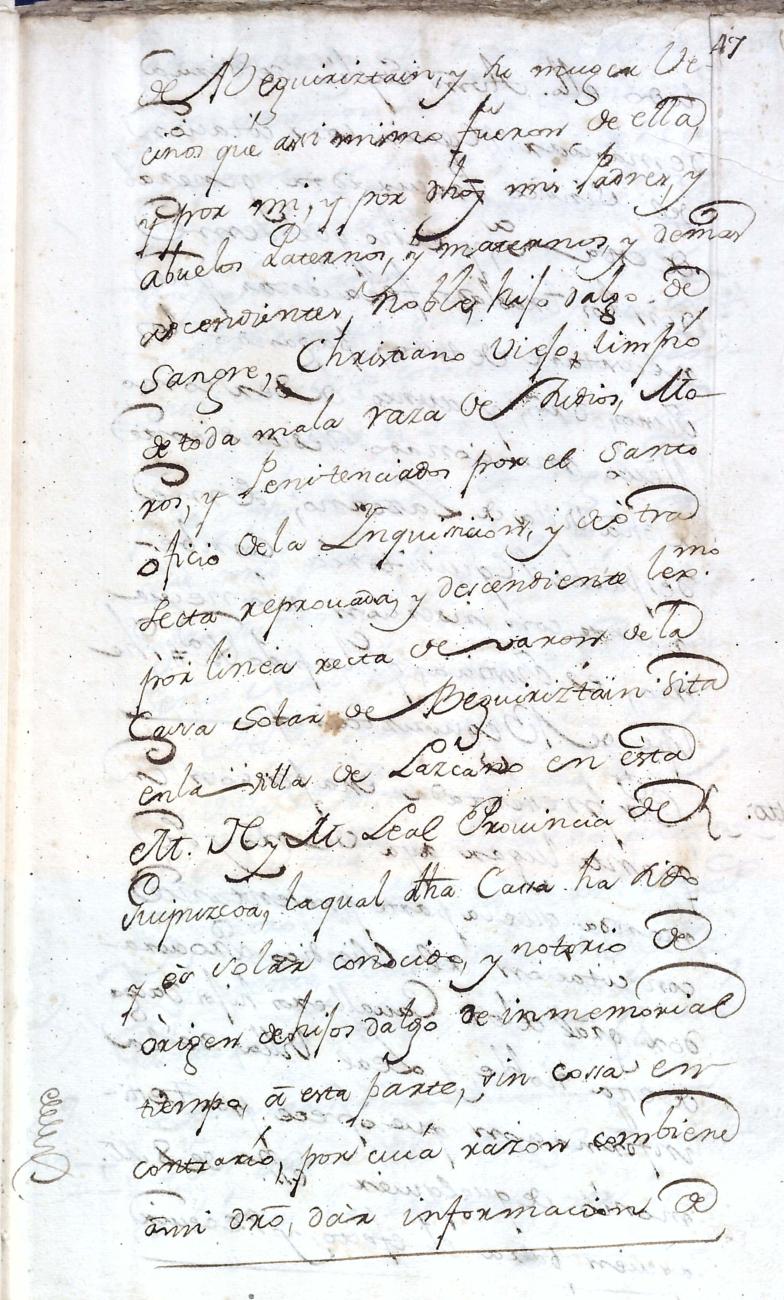 47
de Beguiriztain, y su muger Ve-
cinos que assi mimo fueron de ella,
y por mi, y por dhos mis Padres, y
abuelos Paternos, y maternos, y demas
ascendientes, noble, hijo dalgo de
sangre, Christiano Viejo, limpio
de toda mala raza de Judios, Mo-
ros, y Penitenciados por el santo
oficio de la Inquisicion, y de otra
secta reprouada, y descendiente lexmo.
por linea recta de varon de la
Cassa solar de Beguiriztain sita
en la villa de Lazcano en esta
M. N. y M. Leal Provincia de
Guipuzcoa, la qual dha Cassa ha sido
y es solar conocido, y notorio de
origen de hijos dalgo de inmemorial
tiempo, a esta parte, sin cossa en
contrario, por cuia razon combiene
ami dro, dar informacion de